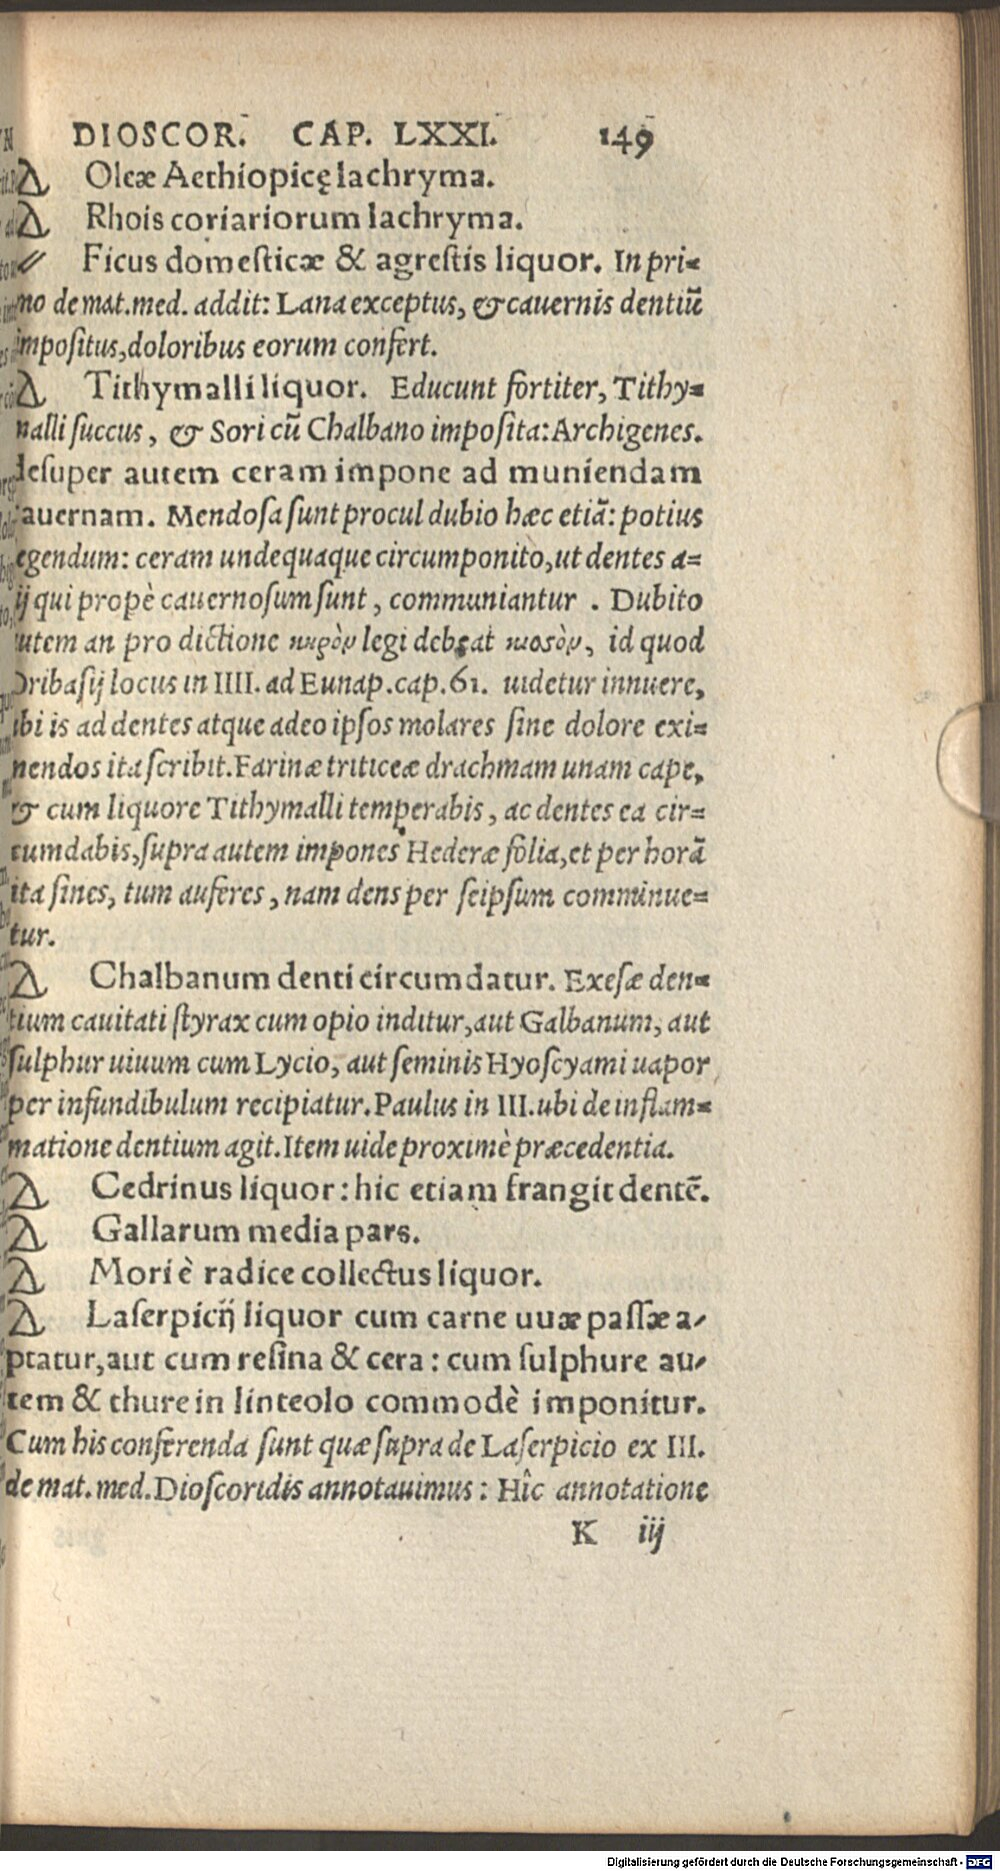 DIOSCOR. CAP. LXXI. 149
Δ Oleæ Aethiopicę lachryma.
Δ Rhois coriariorum lachryma.
Ficus domesticæ & agrestis liquor. In pri-
mo de mat. med. addit: Lana exceptus, & cauernis dentiũ
impositus, doloribus eorum confert.
Δ Tithymalli liquor. Educunt fortiter, Tithy-
malli succus, & Sori cũ Chalbano imposita: Archigenes.
desuper autem ceram impone ad muniendam
cauernam. Mendosa sunt procul dubio hæc etiã: potius
legendum: ceram undequaque circumponito, ut dentes a-
lij qui propè cauernosum sunt, communiantur. Dubito
autem an pro dictione κηρὸν legi debeat κισσὸν, id quod
Oribasij locus in IIII. ad Eunap. cap. 61. uidetur innuere,
ubi is ad dentes atque adeo ipsos molares sine dolore exi-
mendos ita scribit. Farinæ triticeæ drachmam unam cape,
& cum liquore Tithymalli temperabis, ac dentes ea cir-
cumdabis, supra autem impones Hederæ folia, et per horã
ita sines, tum auferes, nam dens per seipsum comminue-
tur.
Δ Chalbanum denti circumdatur. Exesæ den-
tium cauitati styrax cum opio inditur, aut Galbanum, aut
sulphur uiuum cum Lycio, aut seminis Hyoscyami uapor
per infundibulum recipiatur. Paulus in III. ubi de inflam-
matione dentium agit. Item uide proximè præcedentia.
Δ Cedrinus liquor: hic etiam frangit dentẽ.
Δ Gallarum media pars.
Δ Mori è radice collectus liquor.
Δ Laserpicij liquor cum carne uuæ passæ a-
ptatur, aut cum resina & cera: cum sulphure au-
tem & thure in linteolo commodè imponitur.
Cum his conferenda sunt quæ supra de Laserpicio ex III.
de mat. med. Dioscoridis annotauimus: Hîc annotatione
K iij
Digitalisierung gefördert durch die Deutsche Forschungsgemeinschaft - DFG